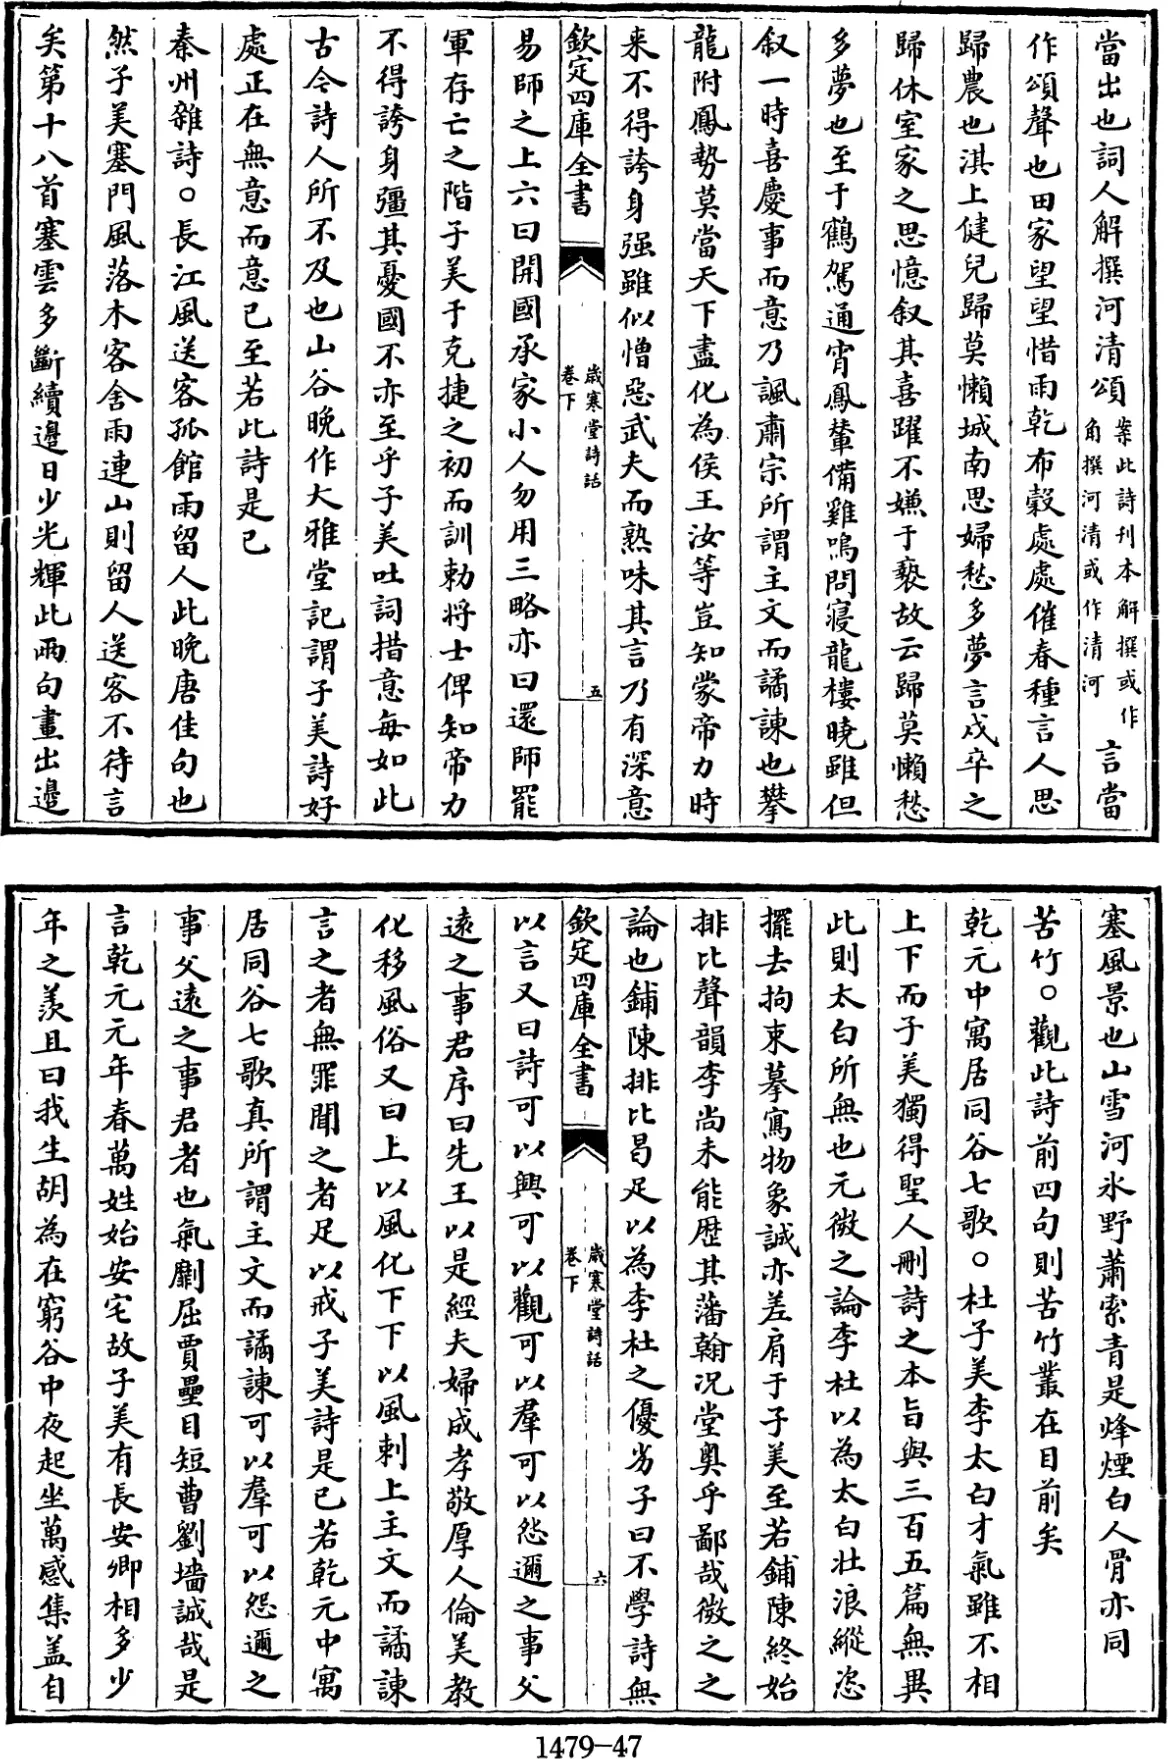 當出也詞人解撰河清頌案此詩刋本解撰或作角撰河清或作清河言當
作頌聲也田家望望惜雨乾布穀處處催春種言人思
歸農也淇上健兒歸莫懶城南思婦愁多夢言戍卒之
歸休室家之思憶叙其喜躍不嫌于䙝故云歸莫懶愁
多夢也至于鶴駕通宵鳳輦備雞鳴問寢龍樓曉雖但
叙一時喜慶事而意乃諷肅宗所謂主文而譎諫也攀
龍附鳳勢莫當天下盡化為侯王汝等豈知蒙帝力時
来不得誇身强雖似憎惡武夫而熟味其言乃有深意
欽定四庫全書
歲寒堂詩話
卷下
五
易師之上六曰開國承家小人勿用三略亦曰還師罷
軍存亡之階子美于克捷之初而訓勅將士俾知帝力
不得誇身彊其憂國不亦至乎子美吐詞措意每如此
古今詩人所不及也山谷晚作大雅堂記謂子美詩好
處正在無意而意已至若此詩是已
秦州雜詩○長江風送客孤館雨留人此晚唐佳句也
然子美塞門風落木客舍雨連山則留人送客不待言
矣第十八首塞雲多斷續邊日少光輝此兩句畫出邊
塞風景也山雪河氷野蕭索青是烽煙白人骨亦同
苦竹○觀此詩前四句則苦竹叢在目前矣
乾元中寓居同谷七歌○杜子美李太白才氣雖不相
上下而子美獨得聖人刪詩之本旨與三百五篇無異
此則太白所無也元微之論李杜以為太白壯浪縱恣
擺去拘束摹寫物象誠亦差肩于子美至若鋪陳終始
排比聲韻李尚未能歴其藩翰况堂奥乎鄙哉微之之
論也鋪陳排比曷足以為李杜之優劣子曰不學詩無
欽定四庫全書
歲寒堂詩話
卷下
六
以言又曰詩可以興可以觀可以羣可以怨邇之事父
遠之事君序曰先王以是經夫婦成孝敬厚人倫美教
化移風俗又曰上以風化下下以風刺上主文而譎諫
言之者無罪聞之者足以戒子美詩是已若乾元中寓
居同谷七歌真所謂主文而譎諫可以羣可以怨邇之
事父遠之事君者也氣劘屈賈壘目短曹劉墻誠哉是
言乾元元年春萬姓始安宅故子美有長安卿相多少
年之羨且曰我生胡為在窮谷中夜起坐萬感集盖自
1479-47